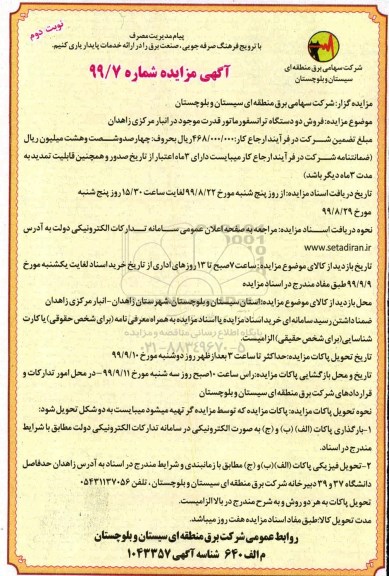 نوبت دوم
پیام مدیریت مصرف
با ترویج فرهنگ صرفه جویی، صنعت برق را در ارائه خدمات پایدار یاری کنیم.
شرکت سهامی برق منطقه ای
سیستان و بلوچستان
آگهی مزایده شماره ۹۹/۷
مزایده گزار: شرکت سهامی برق منطقه ای سیستان و بلوچستان
موضوع مزایده: فروش دو دستگاه ترانسفورماتور قدرت موجود در انبار مرکزی زاهدان
مبلغ تضمین شرکت در فرآیند ارجاع کار: ۴۶۸/۰۰۰/۰۰۰ ریال بحروف: چهارصدوشصت وهشت میلیون ریال
(ضمانتنامه شرکت در فرآیند ارجاع کار میبایست دارای ۳ ماه اعتبار از تاریخ صدور و همچنین قابلیت تمدید به
مدت ۳ ماه دیگر باشد)
تاریخ دریافت اسناد مزایده: از روز پنج شنبه مورخ ۹۹/۸/۲۲ لغایت ساعت ۱۵/۳۰ روز پنج شنبه
مورخ ۹۹/۸/۲۹
نحوه دریافت اسناد مزایده: مراجعه به صفحه اعلان عمومی سامانه تدارکات الکترونیکی دولت به آدرس
www.setadiran.ir
تاریخ بازدید از کالای موضوع مزایده: ساعت ۷ صبح تا ۱۳ روزهای اداری از تاریخ خرید اسناد لغایت یکشنبه مورخ
۹۹/۹/۹ طبق مفاد مندرج در اسناد مزایده
محل بازدید از کالای موضوع مزایده: استان سیستان و بلوچستان شهرستان زاهدان - انبار مرکزی زاهدان
ضمنا داشتن رسید سامانه ای خرید اسناد مزایده یا اسناد مزایده به همراه معرفی نامه (برای شخص حقوقی) یا کارت
شناسایی (برای شخص حقیقی) الزامیست.
تاریخ تحویل پاکات مزایده: حداکثر تا ساعت ۳ بعدازظهر روز دوشنبه مورخ ۹۹/۹/۱۰
تاریخ و محل بازگشایی پاکات مزایده: راس ساعت ۱۰ صبح روز سه شنبه مورخ ۹۹/۹/۱۱ - در محل امور تدارکات و
قراردادهای شرکت برق منطقه ای سیستان و بلوچستان
نحوه تحویل پاکات مزایده: پاکات مزایده که توسط مزایده گر تهیه میشود میبایست به دو شکل تحویل شود:
۱- بارگذاری پاکات (الف) (ب) و (ج) به صورت الکترونیکی در سامانه تدارکات الکترونیکی دولت مطابق با شرایط
مندرج در اسناد.
۲- تحویل فیزیکی پاکات (الف) (ب) و (ج) مطابق با زمانبندی و شرایط مندرج در اسناد به آدرس زاهدان حدفاصل
دانشگاه ۳۷ و ۳۹ دبیرخانه شرکت برق منطقه ای سیستان و بلوچستان، تلفن ۰۵۴۳۱۱۳۷۰۵۶
تحویل پاکات به هر دو روش و به شرح مندرج در بالا الزامیست.
مدت تحویل کالا: طبق مفاد اسناد مزایده هفت روز میباشد.
روابط عمومی شرکت برق منطقه ای سیستان و بلوچستان
م الف ۶۴۰ شناسه آگهی ۱۰۴۳۳۵۷
پایگاه اطلاع رسانی مناقصه و مزایده
۰۲۱-۸۸۳۴۹۶۷۰-۵